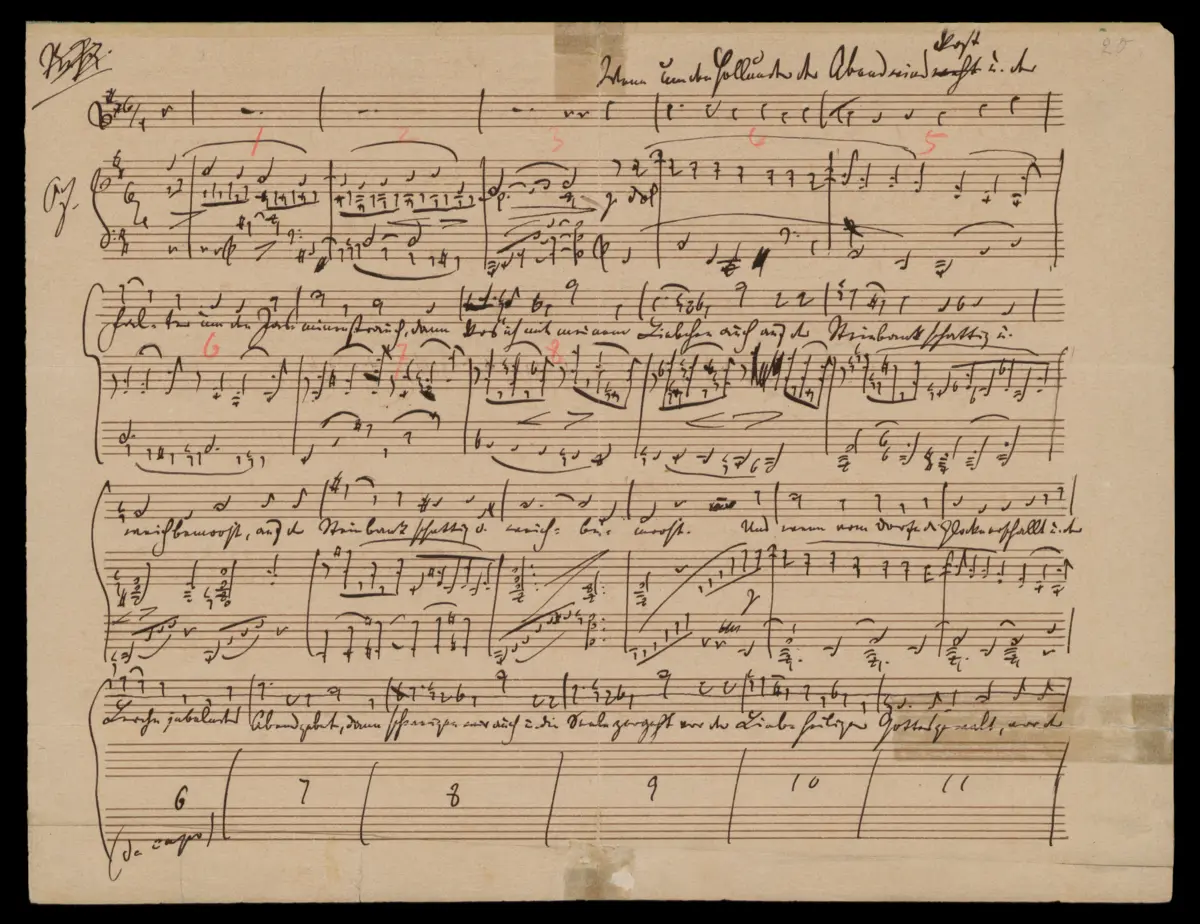 20
Kost
Wenn um den Hollunder der Abendwind u. der
1 2 3 5
Falter um den Jasminenstrauch, dann kos' ich mit meinem Liebchen auch auf der Steinbank schattig u.
6 7 8
weichbemoost, auf der Steinbank schattig u. weich- be- moost. Und wenn vom Dorfe die Glocke erschallt u. der
Lerche jubelndes Abendgebet, dann schweigen wir auch u. die Seele zergeht vor der Liebe heiliger Gottesgewalt, vor der
6 7 8 9 10 11
(da capo)